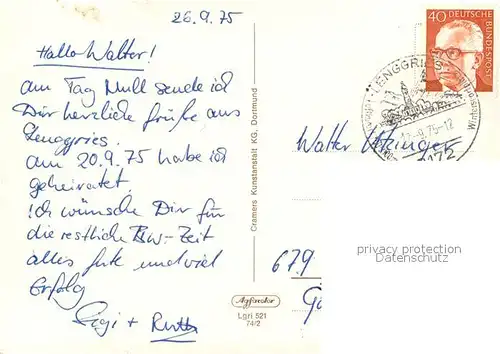 26.9.75
Hallo Walter!
am Tag Null sende ich
Dir herzliche Grüße aus
Lenggries.
am 20.9.75 habe ich
geheiratet.
Ich wünsche Dir für
die restliche Bw-Zeit
alles Gute und viel
Erfolg
Sigi + Ruth
Cramers Kunstanstalt KG, Dortmund
Lgri 521
74/2
40 DEUTSCHE
BUNDESPOST
LENGGRIES
.9.75-12
8172
Walter Utzinger
679
privacy protection
Datenschutz